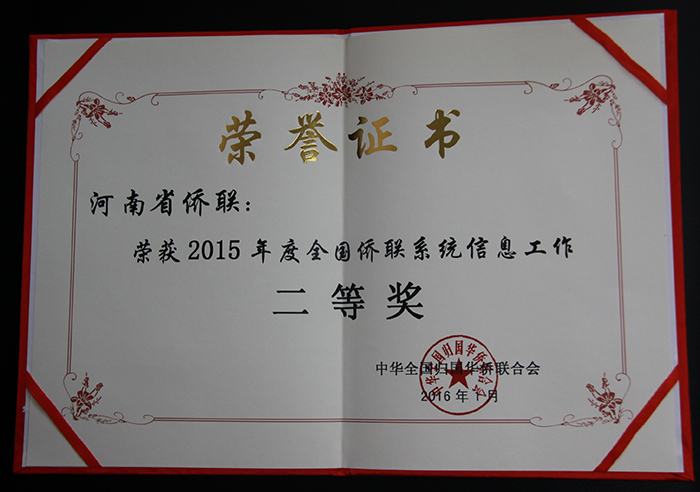 荣誉证书
河南省侨联：
荣获2015年度全国侨联系统信息工作
二等奖
中华全国归国华侨联合会
2016年1月
中华全国归国华侨联合会